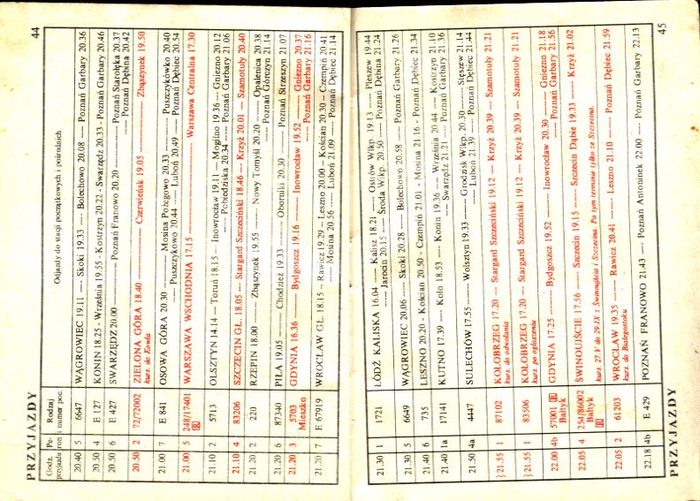 44
PRZYJAZDY
Godz. przyjazdu Peron Rodzaj i numer poc. Odjazdy do stacji początkowych i pośrednich
20.40 5 6647 WĄGROWIEC 19.11 — Skoki 19.33 — Bolechowo 20.08 — Poznań Garbary 20.36
20.50 4 E 127 KONIN 18.25 - Września 19.55 - Kostrzyn 20.23 - Swarzędz 20.33 - Poznań Garbary 20.46
20.50 6 E 427 SWARZĘDZ 20.00 — Poznań Franowo 20.20 — Poznań Starołęka 20.37
Poznań Dębina 20.42
20.50 2 72/72002 ZIELONA GÓRA 18.40 — Czerwieńsk 19.05 — Zbąszynek 19.50
kurs. do Konina
21.00 7 E 841 OSOWA GÓRA 20.30 — Mosina Pożegowo 20.33 — Puszczykówko 20.40
Puszczykowo 20.44 — Luboń 20.49 — Poznań Dębiec 20.54
21.00 5 248/17401 R WARSZAWA WSCHODNIA 17.15 — Warszawa Centralna 17.30
21.10 2 5713 OLSZTYN 14.14 — Toruń 18.15 — Inowrocław 19.11 — Mogilno 19.36 — Gniezno 20.12
Pobiedziska 20.34 — Poznań Garbary 21.06
21.10 4 83206 SZCZECIN GŁ. 18.05 — Stargard Szczeciński 18.46 — Krzyż 20.01 — Szamotuły 20.40
21.20 2 220 RZEPIN 18.00 — Zbąszynek 19.55 — Nowy Tomyśl 20.20 — Opalenica 20.38
Poznań Górczyn 21.14
21.20 6 87340 PIŁA 19.05 — Chodzież 19.33 — Oborniki 20.30 — Poznań Strzeszyn 21.07
21.20 3 5703 Mieszko GDYNIA 16.36 — Bydgoszcz 19.16 — Inowrocław 19.52 — Gniezno 20.37
Poznań Garbary 21.16
21.20 7 E 67919 WROCŁAW GŁ. 18.15 — Rawicz 19.29 — Leszno 20.00 — Kościan 20.30 — Czempiń 20.41
Mosina 20.56 — Luboń 21.09 — Poznań Dębiec 21.14
45
PRZYJAZDY
21.30 1 1721 ŁÓDŹ KALISKA 16.04 — Kalisz 18.21 — Ostrów Wlkp. 19.13 — Pleszew 19.44
Jarocin 20.15 — Środa Wlkp. 20.50 — Poznań Dębina 21.24
21.30 5 6649 WĄGROWIEC 20.06 — Skoki 20.28 — Bolechowo 20.58 — Poznań Garbary 21.26
21.40 735 LESZNO 20.20 - Kościan 20.50 - Czempiń 21.01 - Mosina 21.16 - Poznań Dębiec 21.34
21.40 6 17141 KUTNO 17.39 — Koło 18.53 — Konin 19.36 — Września 20.44 — Kostrzyn 21.10
Swarzędz 21.21 — Poznań Garbary 21.36
21.50 1a 4447 SULECHÓW 17.55 — Wolsztyn 19.33 — Grodzisk Wlkp. 20.30 — Stęszew 21.14
Luboń 21.39 — Poznań Dębiec 21.44
21.55 1 87102 KOŁOBRZEG 17.20 — Stargard Szczeciński 19.12 — Krzyż 20.39 — Szamotuły 21.21
kurs. do odwołania
21.55 1 83506 KOŁOBRZEG 17.20 — Stargard Szczeciński 19.12 — Krzyż 20.39 — Szamotuły 21.21
kurs. po ogłoszeniu
22.00 4b 57001 R Bałtyk GDYNIA 17.25 — Bydgoszcz 19.52 — Inowrocław 20.30 — Gniezno 21.18
Poznań Garbary 21.56
22.05 4 254/86002 Bałtyk R ŚWINOUJŚCIE 17.56 — Szczecin 19.15 — Szczecin Dąbie 19.33 — Krzyż 21.02
kurs. 27.V do 29.IX z Świnoujścia i Szczecina. Po tym terminie tylko ze Szczecina.
22.05 2 61203 WROCŁAW 19.35 — Rawicz 20.41 — Leszno 21.10 — Poznań Dębiec 21.59
kurs. do Białegostoku
22.18 4b E 429 POZNAŃ FRANOWO 21.43 — Poznań Antoninek 22.00 — Poznań Garbary 22.13